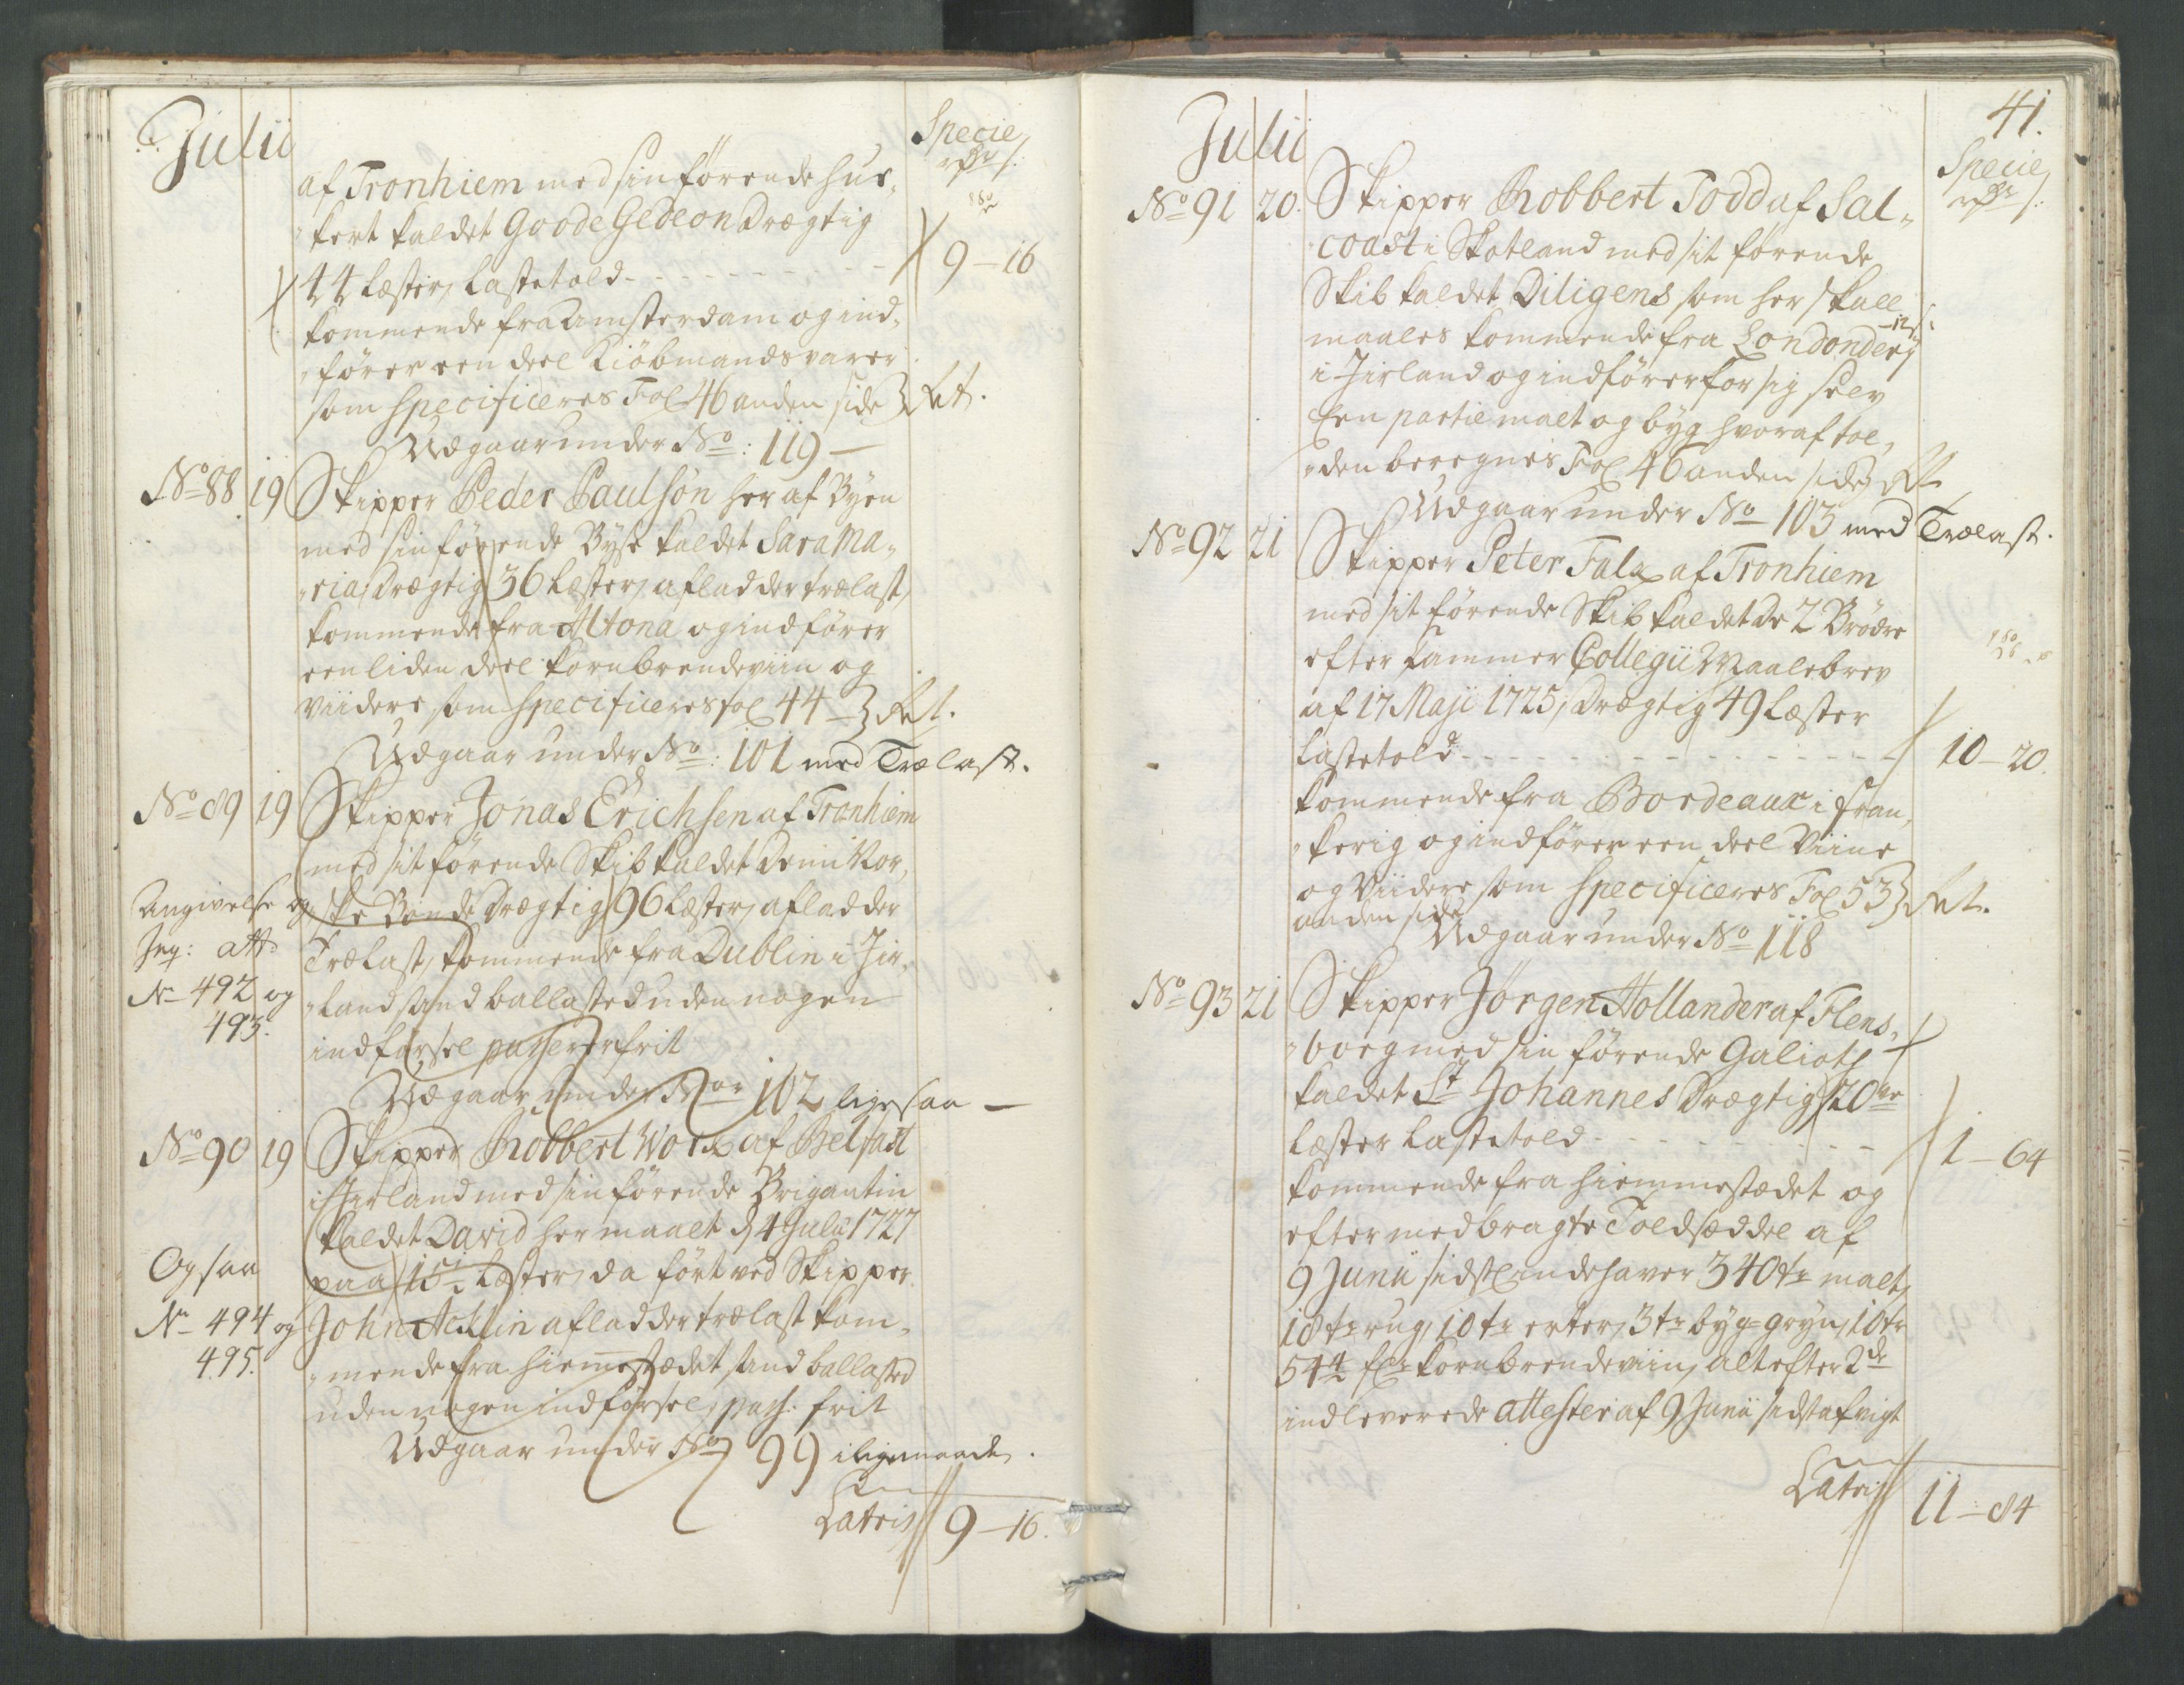 Julii
Specie
rdr s:
af Tronhiem med sin förende huc„
„kert kaldet Goode Gedeon drægtig
44 læster, Lastetold - - - - 9 - 16
kommende fra Amsterdam og ind„
„fører een deel Kiöbmandsvarer
som specificeres Fol 46 anden side } Rt.
Udgaar under No: 119 —
No 88 19 Skipper Peder Paulsön her af Byen
med sin förende Byse kaldet Sara Ma„
„ria, drægtig 36 Læster, aflad der trælast,
kommende fra Altona og indfører
een liden deel kornbrendeviin og
viidere som specificeres fol 44 - } Rt.
Udgaar under No: 101 med Trælast.
No 89 19 Skipper Jonas Erichsen af Tronhiem
med sit förende Skib kaldet Den Nor„
Angivelse og
ske Bonde drægtig 96 Læster, aflad der
Inq: att:
Trælast, kommende fra Dublin i Jir„
No 492 og
„land sand ballasted uden nogen
493.
indførsel passerer frit
Udgaar under No 102 ligesaa —
No 90 19 Skipper Robbert Work af Belfast
i Jirland med sin förende Brigantin
kaldet David her maalt d 4 Julii 1727
Ogsaa
paa 15½ Læster, da ført ved Skipper
No 494 og
John Acklin aflad der trælast kom„
495.
„mende fra hiemstædet, sand ballasted
uden nogen indførsel, pass: frit
Udgaar under No 99 i ligemaade.
Latris 9 - 16.
41.
Julii
Specie
rdr s:
No 91 20. Skipper Robbert Todd af Sal„
„coast i Skotland med sit förende
Skib kaldet Diligens som her skall
maales kommende fra Londondery
i Jirland og indfører for sig selv
Een partie malt og byg hvoraf tol„
„den beregnes Fol 46 anden side } Rt
Udgaar under No 103 med Trælast.
No 92 21 Skipper Peter Falx af Tronhiem
med sit förende Skib kaldet De 2 Brödre
efter Kammer Collegii Maalebrev
af 17 Maji 1725, drægtig 49 Læster
Lastetold - - - - 10 - 20.
kommende fra Bordeaux i Fran„
„kerig og indfører een deel Viine
og Viidere som specificeres Fol 53 } Rt.
anden side
Udgaar under No 118
No 93 21 Skipper Jörgen Hollander af Flens„
„borg med sin förende Galioth
kaldet St Johannes drægtig 20
Læster Lastetold - - - - 1 - 64
kommende fra hiemmestædet og
efter medbragte Toldsæddel af
9 Junii sidstl indehaver 340 tr malt,
18 tr rug, 10 tr erter, 3 tr byg-gryn, 10 tr
kornbrendeviin, alt efter 2de
indleverede attester af 9 Junii sidst afvigt
Latris 11 - 84